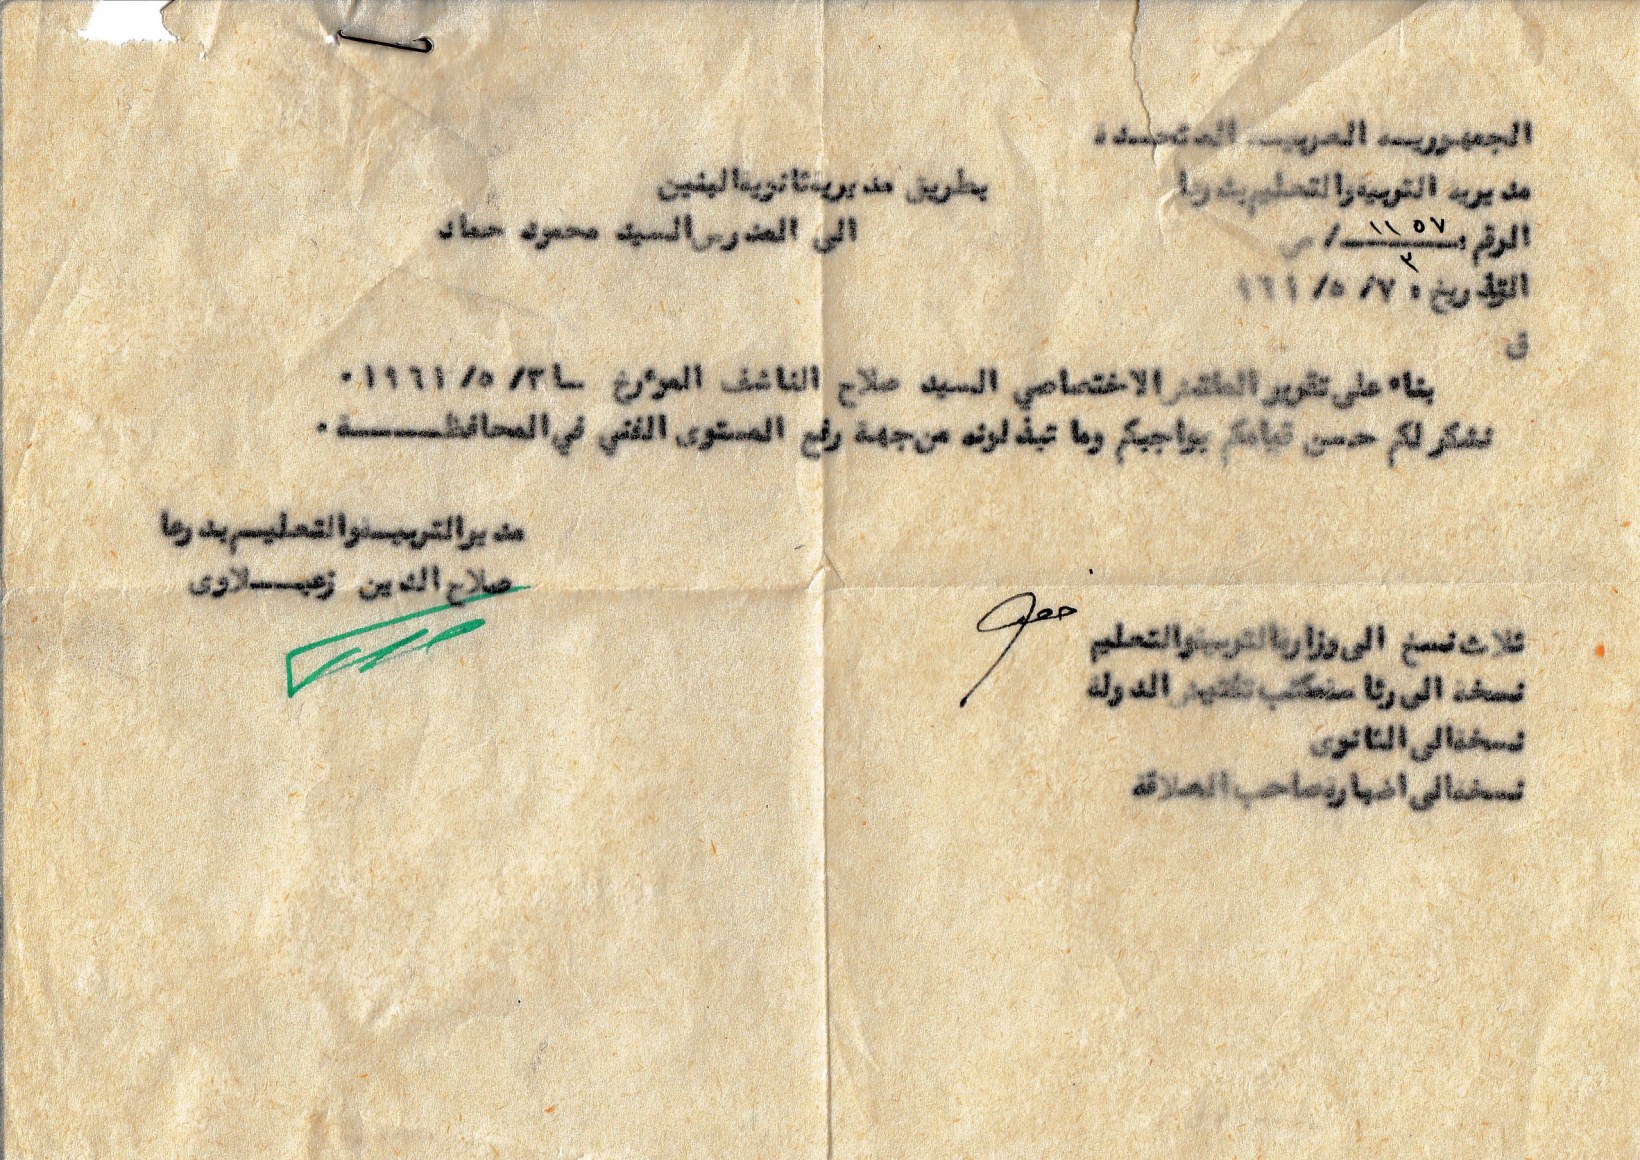 الجمهوريــه العربيــه المتحــدة
مديرية التربيه والتعليم بدرعا
الرقم : ١١٥٧ / ص
٣
التاريخ : ٧ / ٥ / ٩٦١
بطريق مديرية ثانوية البنين
الى المدرس السيد محمود حماد
ق
بناء على تقرير المفتش الاختصاصي السيد صلاح الناشف المؤرخ ٣ / ٥ / ١٩٦١ ٠
نشكر لكم حسن قيامكم بواجبكم وما تبذلونه من جهة رفع المستوى الفني في المحافظــــــة ٠
مدير التربيــة والتعليــم بدرعا
صلاح الدين زعبـــلاوى
ثلاث نسخ الى وزارة التربية والتعليم
نسخة الى رئاسة مكتب تفتيش الدولة
نسخة الى الثانوى
نسخة الى اضبارة صاحب العلاقة